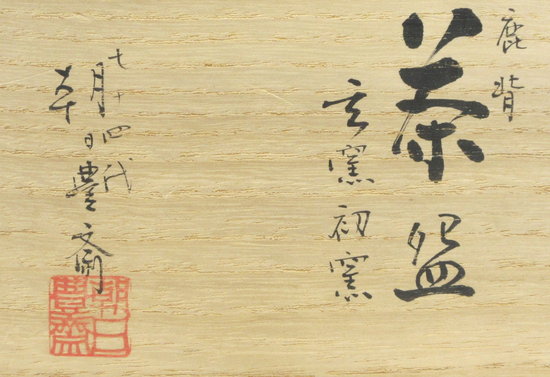 鹿背
茶盌
玄窯初窯
十四代
朝日豊斎
朝日豊斎